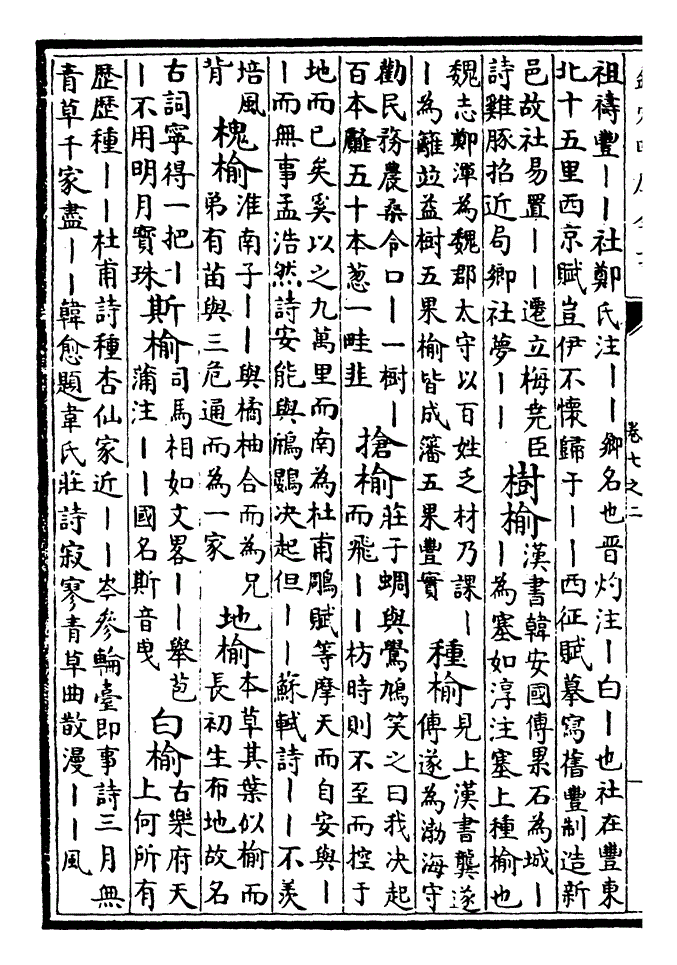 卷七之二
祖禱豐丨丨社鄭氏注丨丨鄉名也晋灼注丨白丨也社在豐東
北十五里西京賦豈伊不懷歸于丨丨西征賦摹寫舊豐制造新
邑故社易置丨丨遷立梅堯臣
詩雞豚招近局鄉社夢丨丨
樹榆
漢書韓安國傳累石為城丨
丨為塞如淳注塞上種榆也
魏志鄭渾為魏郡太守以百姓乏材乃課丨
丨為籬竝益樹五果榆皆成藩五果豐實
種榆
見上漢書龔遂
傳遂為渤海守
勸民務農桑令口丨一樹丨
百本䪥五十本葱一畦韭
搶榆
莊子蜩與鷽鳩笑之曰我决起
而飛丨丨枋時則不至而控于
地而已矣奚以之九萬里而南為杜甫鵰賦等摩天而自安與丨
丨而無事孟浩然詩安能與鴳鷃决起但丨丨蘇軾詩丨丨不羨
培風
背
槐榆
淮南子丨丨與橘柚合而為兄
弟有苗與三危通而為一家
地榆
本草其葉似榆而
長初生布地故名
古詞寧得一把丨
丨不用明月寳珠
斯榆
司馬相如文畧丨丨舉苞
蒲注丨丨國名斯音曳
白榆
古樂府天
上何所有
歷歷種丨丨杜甫詩種杏仙家近丨丨岑參輪臺即事詩三月無
青草千家盡丨丨韓愈題韋氏莊詩寂寥青草曲散漫丨丨風